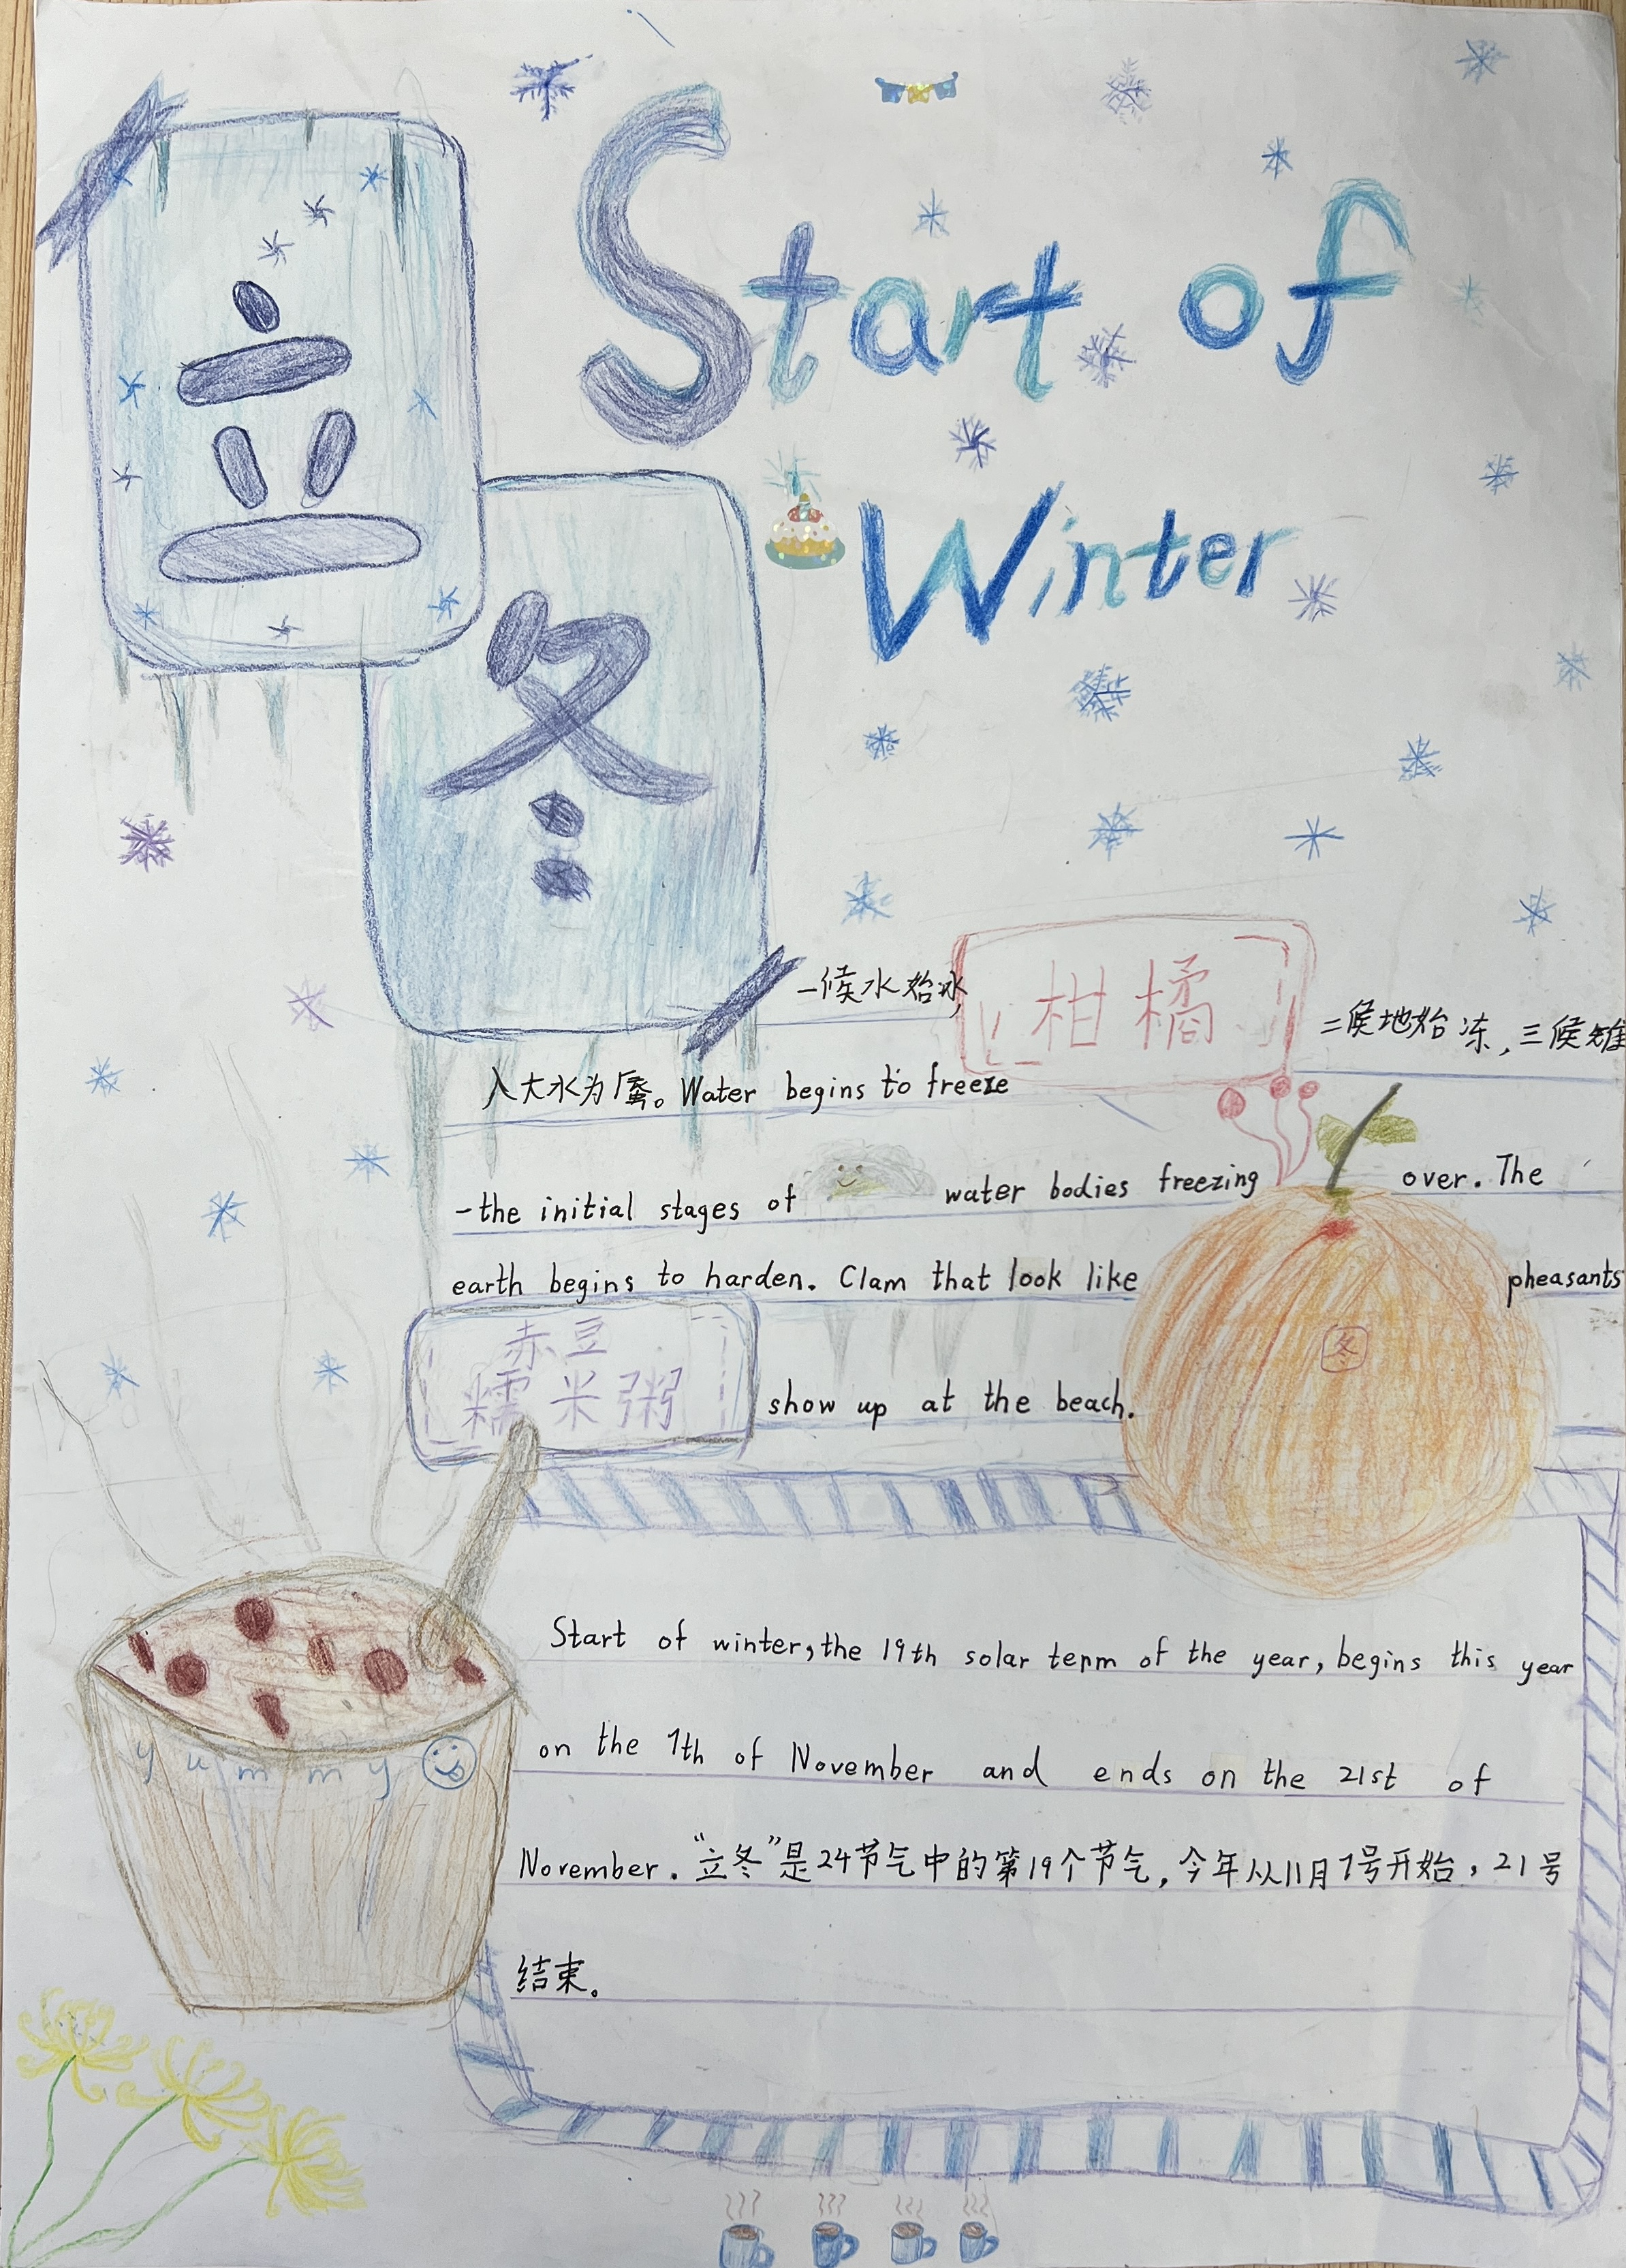 立
冬
Start of
Winter
一候水始冰,
柑橘
二候地始冻,三候雉
入大水为蜃。Water begins to freeze
-the initial stages of water bodies freezing over. The
earth begins to harden. Clam that look like pheasants
冬
赤豆
糯米粥
show up at the beach.
Start of winter,the 19th solar term of the year, begins this year
on the 7th of November and ends on the 21st of
yummy
November. “立冬”是24节气中的第19个节气,今年从11月7号开始,21号
结束。